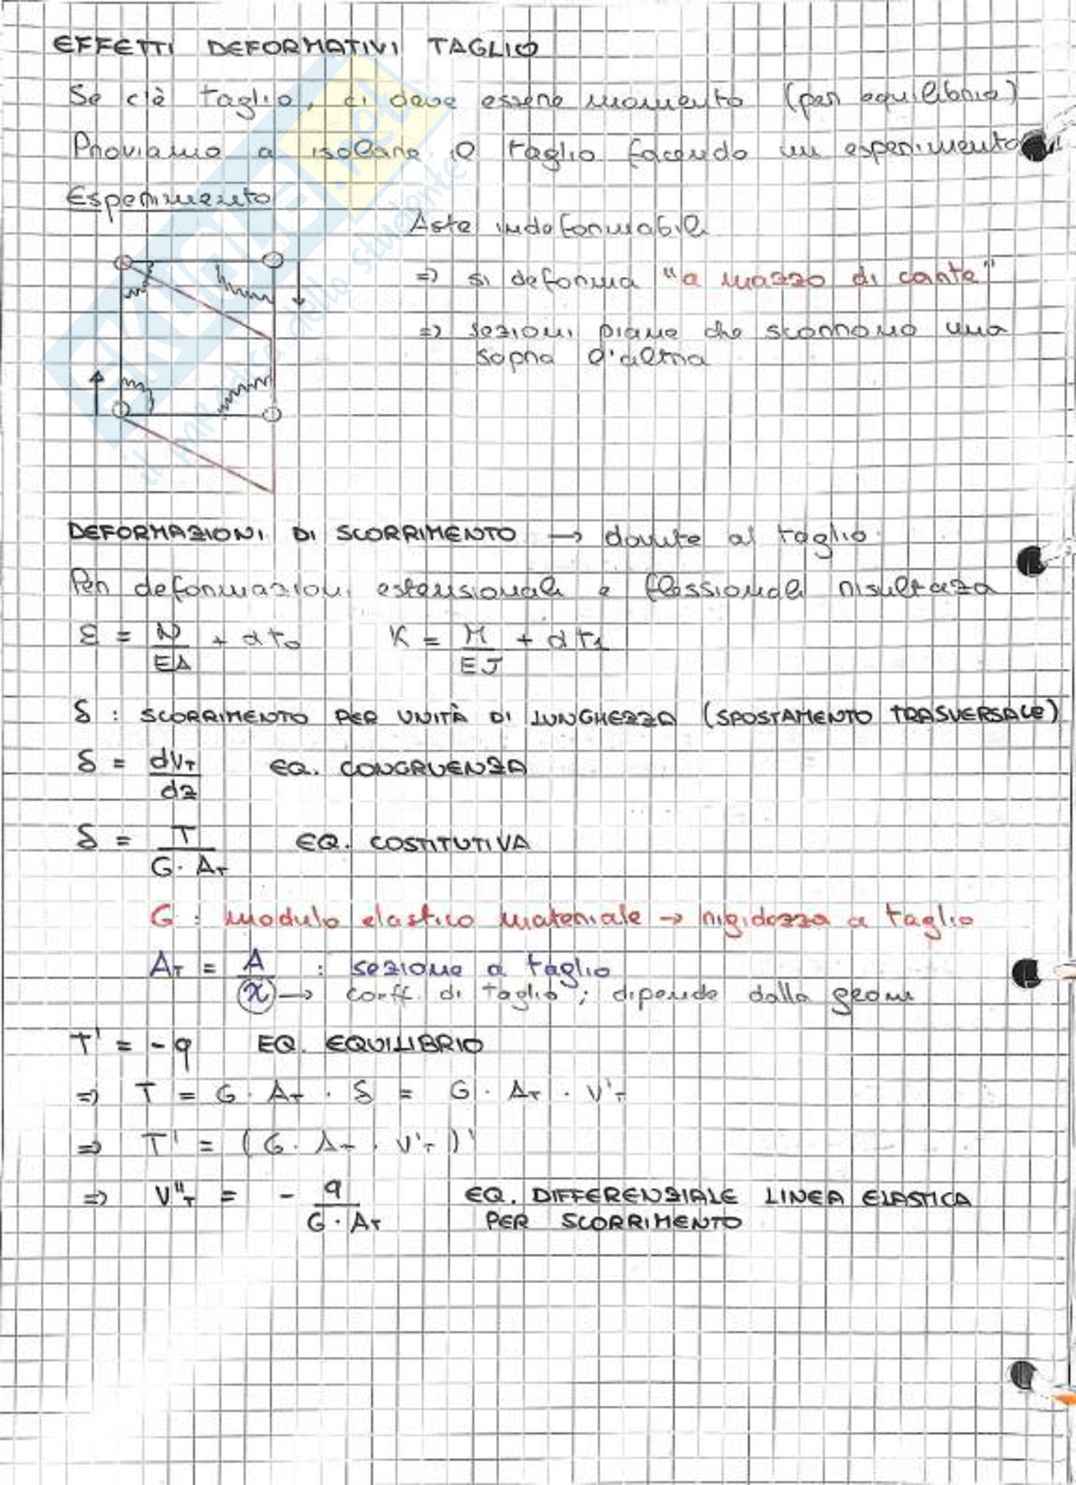 EFFETTI DEFORMATIVI TAGLIO
Se c'è taglio, ci deve essere momento (per equilibrio)
Proviamo a isolare il taglio facendo un esperimento
Esperimento
Aste indeformabili
⇒ si deforma "a mazzo di carte"
⇒ sezioni piane che scorrono una
sopra l'altra
DEFORMAZIONI DI SCORRIMENTO → dovute al taglio
Per deformazioni estensionali e flessionali risultava
ε = N/EA + αt₀ K = M/EJ + αt₁
δ : SCORRIMENTO PER UNITÀ DI LUNGHEZZA (SPOSTAMENTO TRASVERSALE)
δ = dV_T/dz EQ. CONGRUENZA
δ = T/(G · A_T) EQ. COSTITUTIVA
G : modulo elastico materiale → rigidezza a taglio
A_T = A/χ : sezione a taglio
→ coeff. di taglio; dipende dalla geom
T' = -q EQ. EQUILIBRIO
⇒ T = G · A_T · δ = G · A_T · V'_T
⇒ T' = (G · A_T · V'_T)'
⇒ V''_T = - q/(G · A_T) EQ. DIFFERENZIALE LINEA ELASTICA
PER SCORRIMENTO